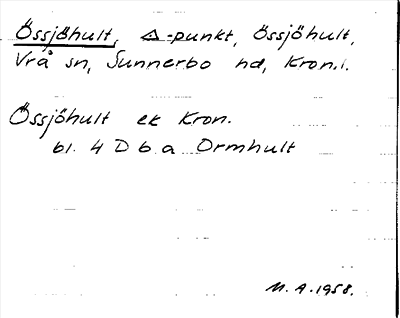 Össjöhult, △-punkt, Össjöhult,
Vrå sn, Sunnerbo hd, Kron.l.
Össjöhult ek Kron.
bl. 4 D 6 a Ormhult
M.A.1958.